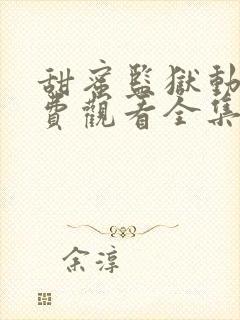 甜蜜監獄動
費觀看全集
余淳